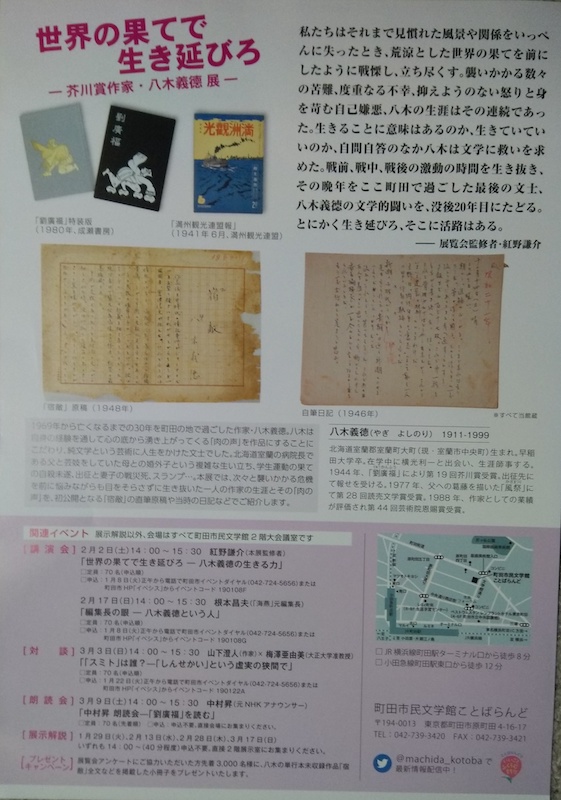 世界の果てで
生き延びろ
― 芥川賞作家・八木義徳 展 ―
私たちはそれまで見慣れた風景や関係をいっぺ
んに失ったとき、荒涼とした世界の果てを前に
したように戦慄し、立ち尽くす。襲いかかる数々
の苦難、度重なる不幸、抑えようのない怒りと身
を苛む自己嫌悪、八木の生涯はその連続であっ
た。生きることに意味はあるのか、生きていてい
いのか、自問自答のなか八木は文学に救いを求
めた。戦前、戦中、戦後の激動の時間を生き抜き、
その晩年をここ町田で過ごした最後の文士、
八木義徳の文学的闘いを、没後20年目にたどる。
とにかく生き延びろ、そこに活路はある。
―― 展覧会監修者・紅野謙介
劉廣福
満洲観光
「劉廣福」特装版
(1980年、成瀬書房)
「満州観光連盟報」
(1941年6月、満州観光連盟)
「宿敵」原稿(1948年)
自筆日記(1946年)
※すべて当館蔵
1969年から亡くなるまでの30年を町田の地で過ごした作家・八木義徳。八木は
自身の経験を通して心の底から湧き上がってくる「肉の声」を作品にすることに
こだわり、純文学という芸術に人生をかけた文士でした。北海道室蘭の病院長で
ある父と芸妓をしていた母との婚外子という複雑な生い立ち、学生運動の果て
の自殺未遂、出征と妻子の戦災死、スランプ―。本展では、次々と襲いかかる危機
を前に悩みながらも目をそらさずに生き抜いた一人の作家の生涯とその「肉の
声」を、初公開となる「宿敵」の直筆原稿や当時の日記などでご紹介します。
八木義徳(やぎ よしのり) 1911-1999
北海道室蘭郡室蘭町大町(現・室蘭市中央町)生まれ。早稲
田大学卒。在学中に横光利一と出会い、生涯師事する。
1944年、「劉廣福」により第19回芥川賞受賞。出征先に
て報せを受ける。1977年、父への葛藤を描いた「風祭」に
て第28回読売文学賞受賞。1988年、作家としての業績
が評価され第44回芸術院恩賜賞受賞。
関連イベント 展示解説以外、会場はすべて町田市民文学館2階大会議室です
[講演会] 2月2日(土)14:00〜15:30 紅野謙介(本展監修者)
「世界の果てで生き延びろ ― 八木義徳の生きる力」
□定員:70名(申込順)
□申込:1月8日(火)正午から電話で町田市イベントダイヤル(042-724-5656)または
町田市HP「イベシス」からイベントコード190108F
2月17日(日)14:00〜15:30 根本昌夫(「海燕」元編集長)
「編集長の眼 ― 八木義徳という人」
□定員:70名(申込順)
□申込:1月8日(火)正午から電話で町田市イベントダイヤル(042-724-5656)または
町田市HP「イベシス」からイベントコード190108G
[対談] 3月3日(日)14:00〜15:30 山下澄人(作家)×梅澤亜由美(大正大学准教授)
「『スミト』は誰?―「しんせかい」という虚実の狭間で」
□定員:70名(申込順)
□申込:1月22日(火)正午から電話で町田市イベントダイヤル(042-724-5656)または
町田市HP「イベシス」からイベントコード190122A
[朗読会] 3月9日(土)14:00〜15:30 中村昇(元NHKアナウンサー)
「中村昇 朗読会―「劉廣福」を読む」
□定員:70名(先着順) □申込:申込不要。直接会場にお集まりください。
[展示解説] 1月29日(火)、2月13日(水)、2月28日(木)、3月17日(日)
いずれも14:00〜(40分程度)申込不要、直接2階展示室にお集まりください。
[プレゼントキャンペーン] 展覧会アンケートにご協力いただいた方先着3,000名様に、八木の単行本未収録作品「宿
敵」全文などを掲載した小冊子をプレゼントいたします。
町田市民文学館
ことばらんど
□ JR横浜線町田駅ターミナル口から徒歩8分
□ 小田急線町田駅東口から徒歩12分
町田市民文学館ことばらんど
〒194-0013 東京都町田市原町田4-16-17
TEL:042-739-3420 FAX:042-739-3421
@machida_kotoba で
最新情報配信中!